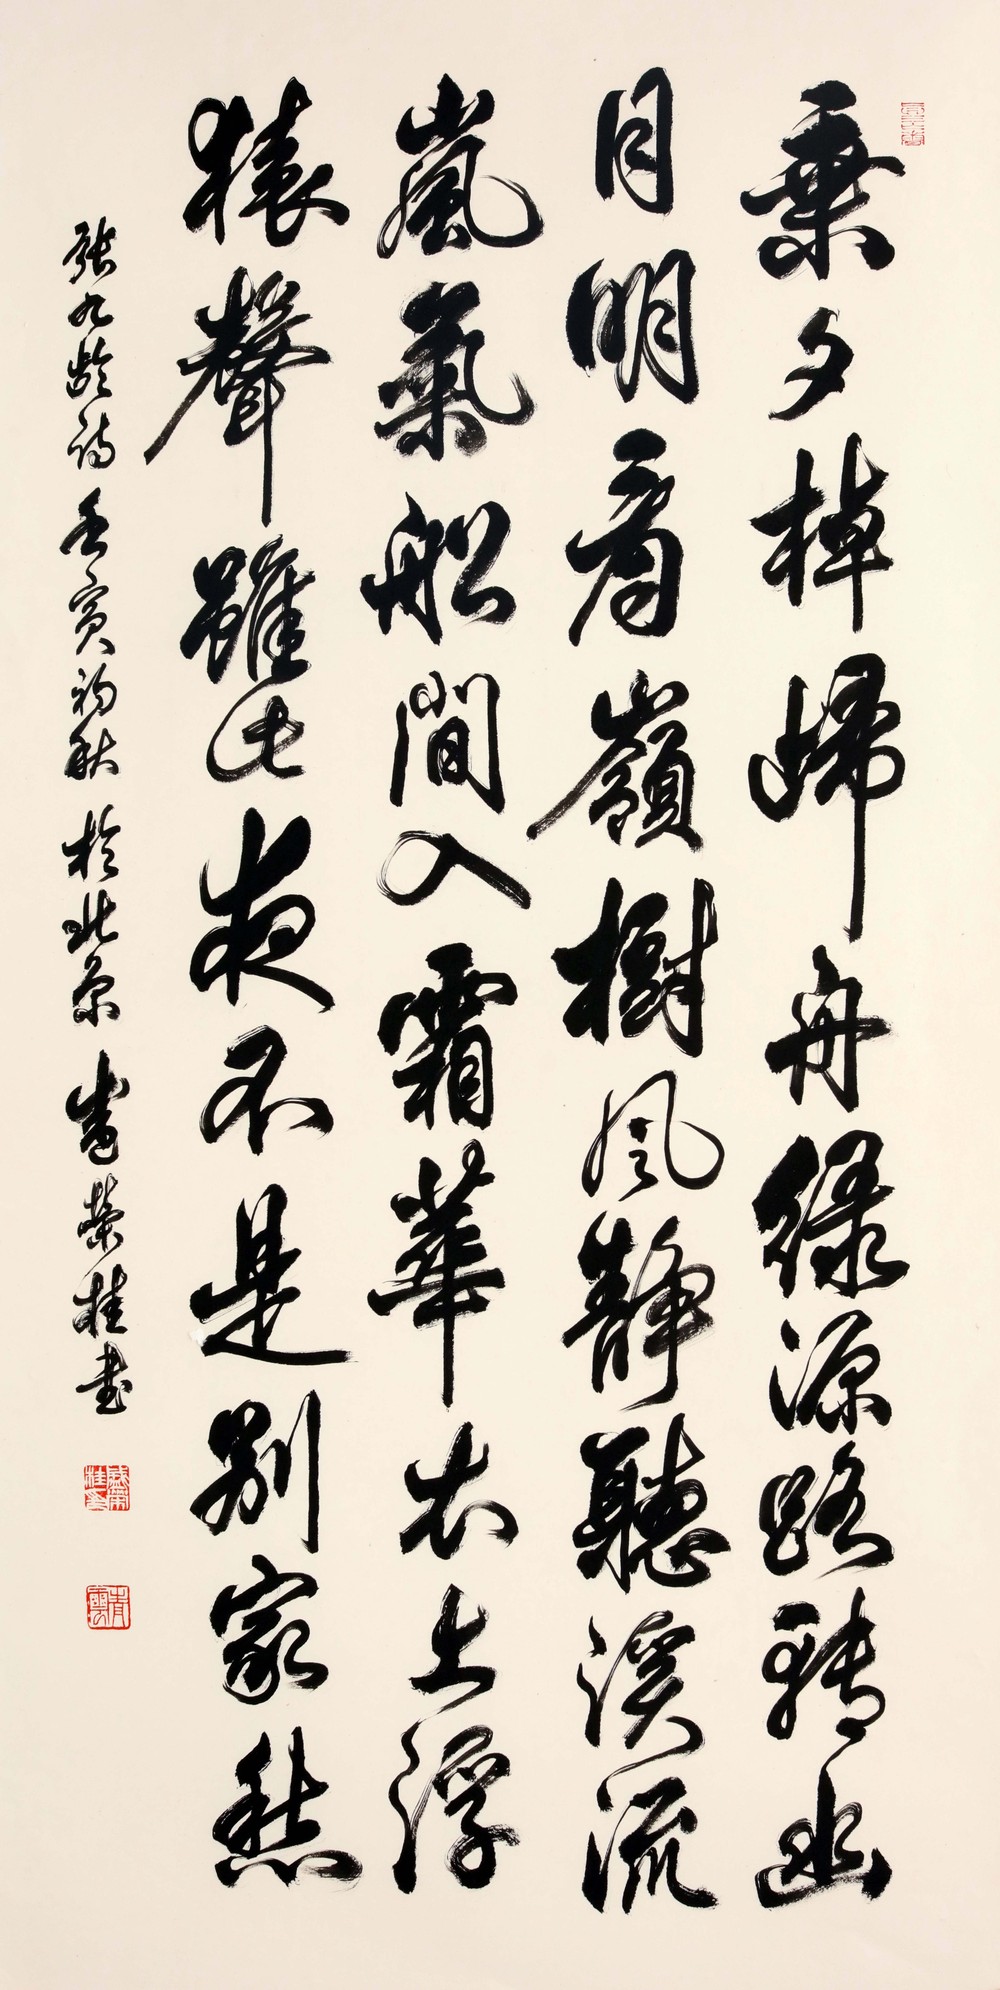 乘夕棹歸舟緣源路轉幽
月明看嶺樹風靜聽溪流
嵐氣船間入霜華衣上浮
猿聲雖此夜不是別家愁
張九齡詩 壬寅初秋 於北京 盛榮桂書
盛榮桂印
青雲